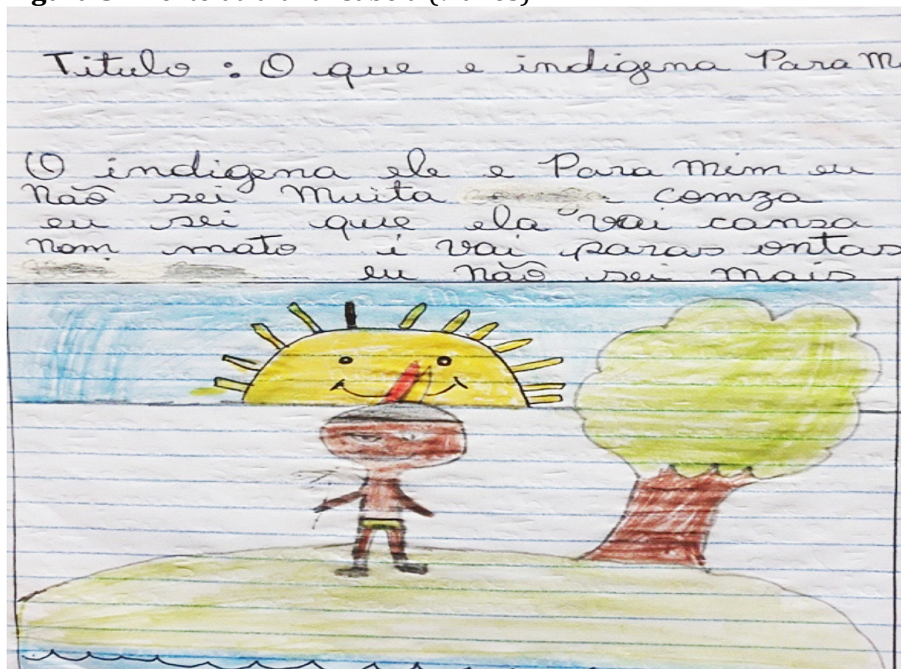 Titulo : O que e indigena Para m
O indigena ele e Para mim eu
não sei muita comza
eu sei que ela vai cansa
nom mato i vai paras ontas
eu não sei mais